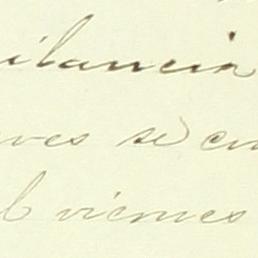 ilancia
ves se en
l viernes